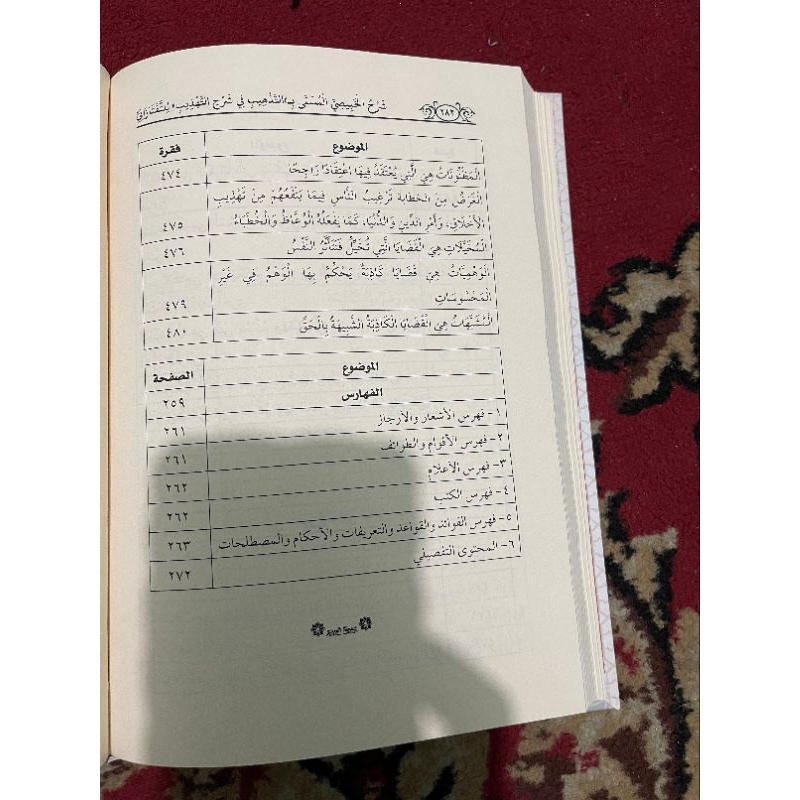 شَرْحُ الخَبِيصِيِّ المُسَمَّى بِـ«التَّذْهِيبِ فِي شَرْحِ التَّهْذِيبِ» لِلتَّفْتَازَانِيِّ ٢٨٢
الموضوع فقرة
المَظْنُونَاتُ هِيَ الَّتِي يُعْتَقَدُ فِيهَا اعْتِقَادًا رَاجِحًا ٤٧٤
الغَرَضُ مِنَ الخطابة تَرْغِيبُ النَّاسِ فِيمَا يَنْفَعُهُمْ مِنْ تَهْذِيبِ
الأَخْلَاقِ، وَأَمْرِ الدِّينِ وَالدُّنْيَا، كَمَا يَفْعَلُهُ الْوُعَّاظُ وَالْخُطَبَاءُ ٤٧٥
المُخَيَّلَاتُ هِيَ الْقَضَايَا الَّتِي تُخَيَّلُ فَتَتَأَثَّرُ النَّفْسُ ٤٧٦
الوَهْمِيَّاتُ هِيَ قَضَايَا كَاذِبَةٌ يَحْكُمُ بِهَا الْوَهْمُ فِي غَيْرِ
الْمَحْسُوسَاتِ ٤٧٩
الْمُشَبَّهَاتُ هِيَ الْقَضَايَا الكَاذِبَةُ الشَّبِيهَةُ بِالْحَقِّ ٤٨٠
الموضوع الصفحة
الفهارس ٢٥٩
١- فهرس الأشعار والأرجاز ٢٦١
٢- فهرس الأقوام والطوائف ٢٦١
٣- فهرس الأعلام ٢٦٢
٤- فهرس الكتب ٢٦٢
٥- فهرس الفوائد والقواعد والتعريفات والأحكام والمصطلحات ٢٦٣
٦- المحتوى التفصيلي ٢٧٢